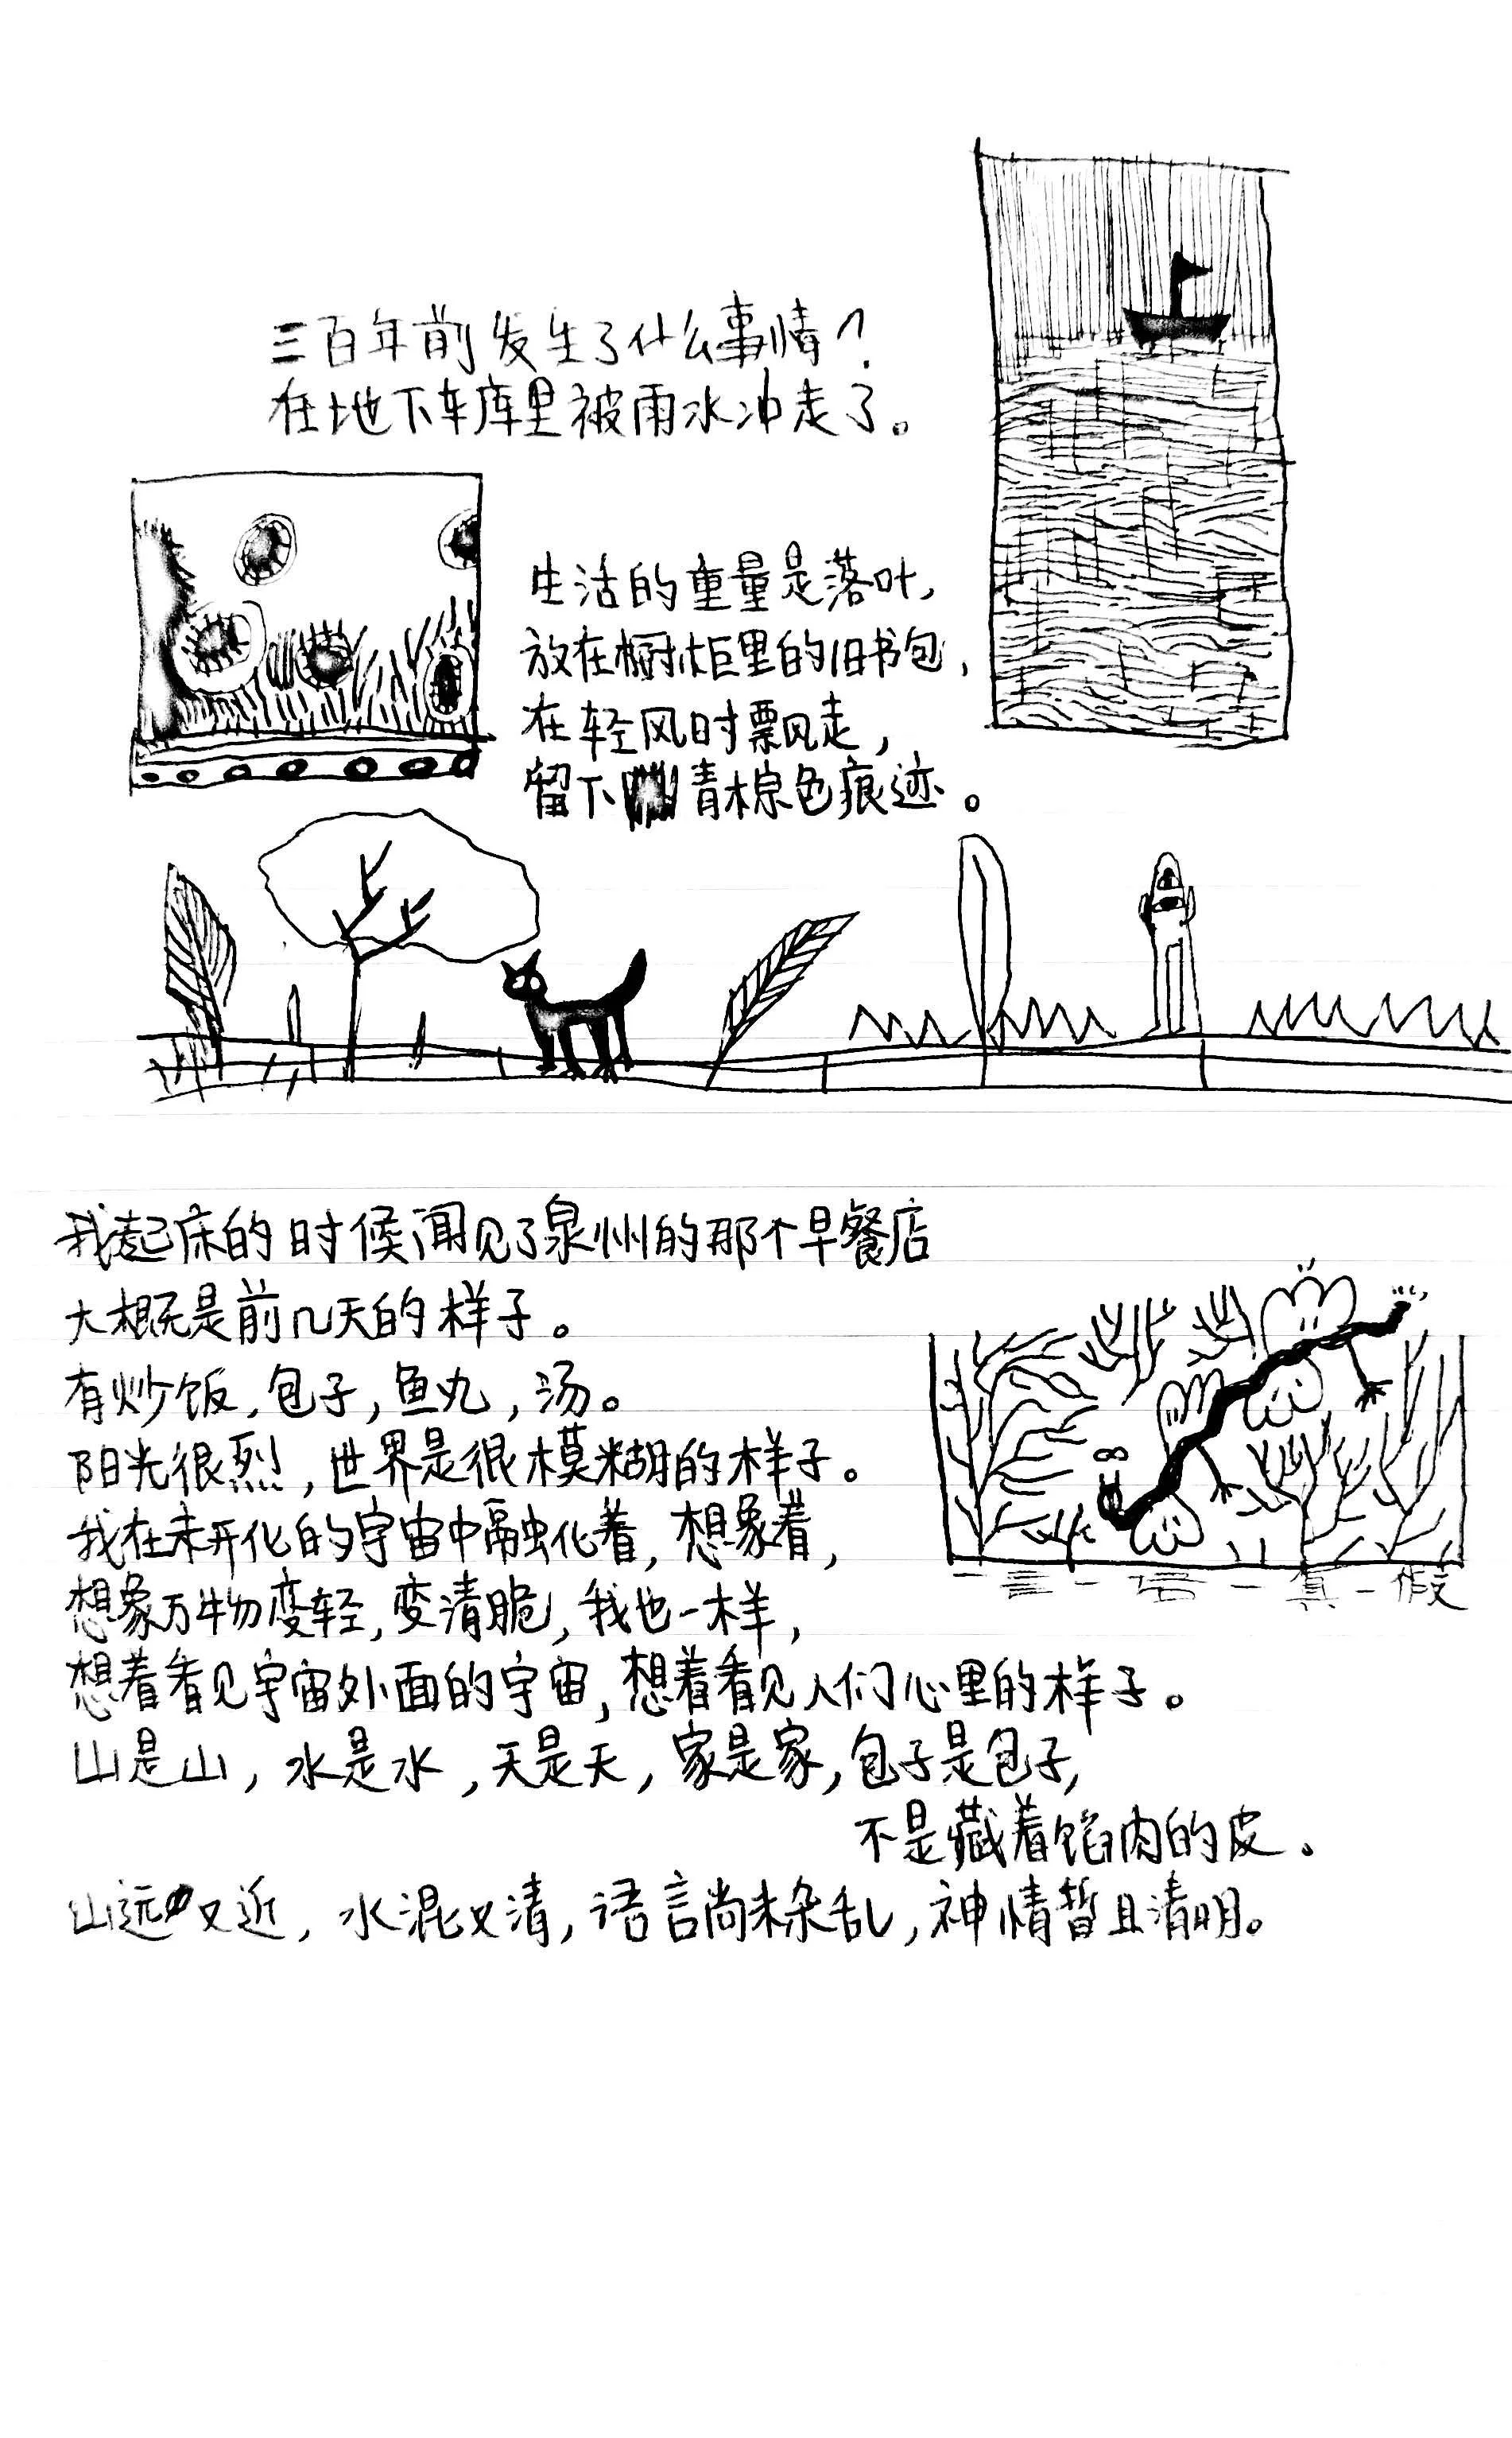 三百年前发生了什么事情?
在地下车库里被雨水冲走了。
生活的重量是落叶,
放在橱柜里的旧书包,
在轻风时飘走,
留下青棕色痕迹。
我起床的时候闻见了泉州的那个早餐店
大概是前几天的样子。
有炒饭,包子,鱼丸,汤。
阳光很烈,世界是很模糊的样子。
我在未开化的宇宙中融化着,想象着,
想象万物变轻,变清脆,我也一样,
想着看见宇宙外面的宇宙,想着看见人们心里的样子。
山是山,水是水,天是天,家是家,包子是包子,
不是藏着馅肉的皮.
山远又近,水混又清,语言尚未杂乱,神情暂且清明。